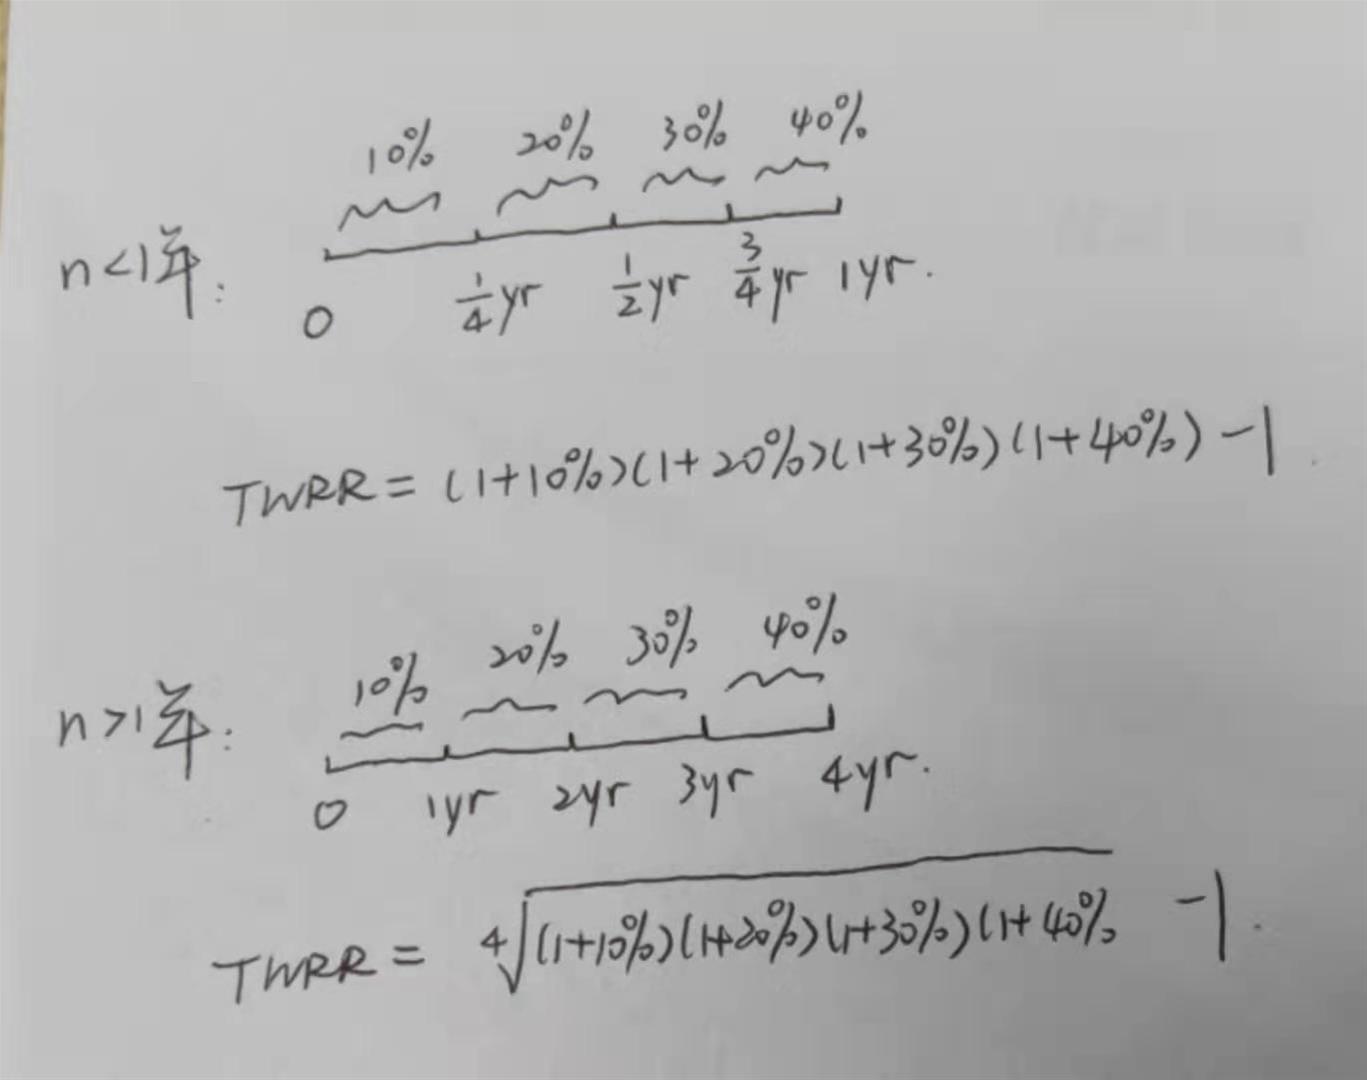 10% 20% 30% 40%
n<1年:
0 1/4 yr 1/2 yr 3/4 yr 1yr.
TWRR = (1+10%)(1+20%)(1+30%)(1+40%) -1
10% 20% 30% 40%
n>1年:
0 1yr 2yr 3yr 4yr.
TWRR = 4√(1+10%)(1+20%)(1+30%)(1+40% -1.